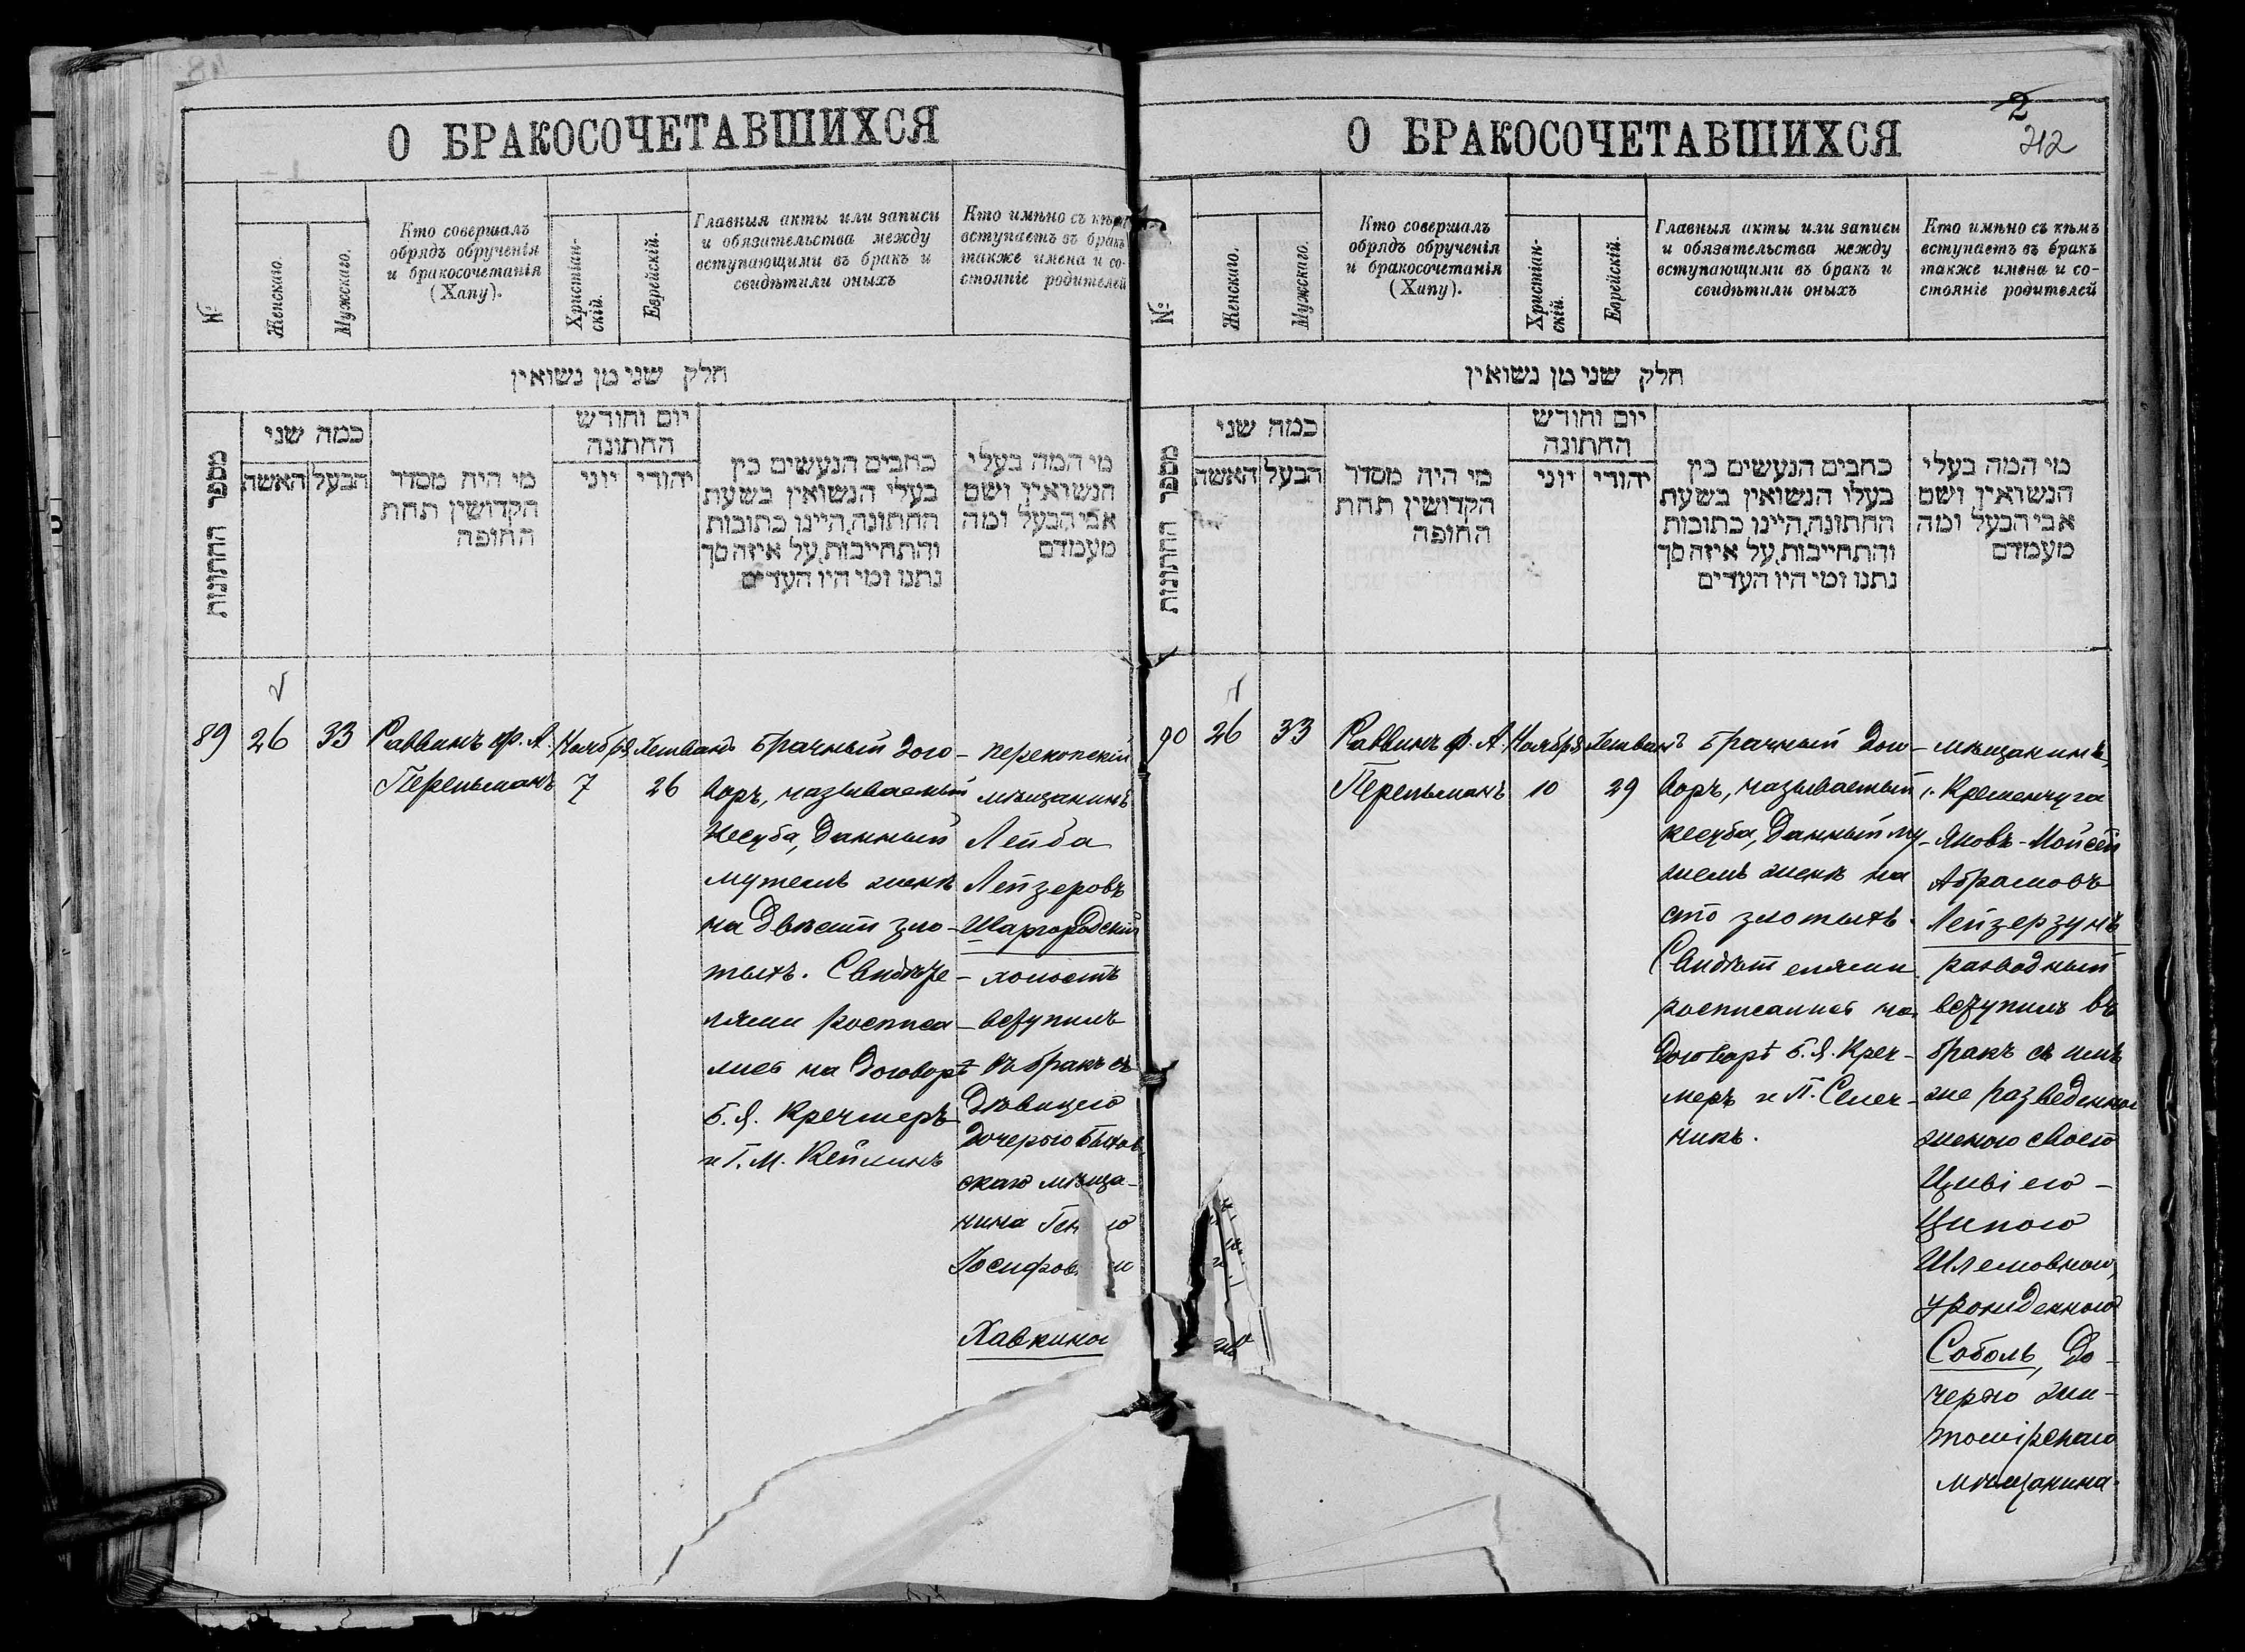 О БРАКОСОЧЕТАВШИХСЯ
№
Женскаго.
Мужскаго.
Кто совершалъ
обрядъ обрученія
и бракосочетанія
(Хупу).
Христіан-
скій.
Еврейскій.
Главныя акты или записи
и обязательства между
вступающими въ бракъ и
свидѣтили оныхъ
Кто имѣно съ кѣмъ
вступаетъ въ бракъ
также имена и со-
стояніе родителей
חלק שני מן נשואין
מספר החתונות
כמה שני
האשה
הבעל
מי היה מסדר
הקדושין תחת
החופה
יום וחודש
החתונה
יוני
יהודי
כתבים הנעשים בין
בעלי הנשואין בשעת
החתונה,היינו כתובות
והתחייבות,על איזה סך
נתנו ומי היו העדים
מי המה בעלי
הנשואין ושם
אבי הבעל ומה
מעמדם
89
26
33
Раввинъ Ф. А.
Перельманъ
Ноября
7
Хешванъ
26
Брачный дого-
воръ, называемый
Кесуба, данный
мужемъ женѣ
на двѣсти зло-
тыхъ. Свидѣте-
лями росписа-
лись на договорѣ
Б. Я. Кречмеръ
и Г. М. Кейлинъ
Перекопскій
мѣщанинъ
Лейба
Лейзеровъ
Шаргородскій
холостъ
вступилъ
въ бракъ съ
дѣвицею
дочерью Быхов
скаго мѣща-
нина
Хавкиною
О БРАКОСОЧЕТАВШИХСЯ
2
212
№
Женскаго.
Мужскаго.
Кто совершалъ
обрядъ обрученія
и бракосочетанія
(Хупу).
Христіан-
скій.
Еврейскій.
Главныя акты или записи
и обязательства между
вступающими въ бракъ и
свидѣтили оныхъ
Кто имѣно съ кѣмъ
вступаетъ въ бракъ
также имена и со-
стояніе родителей
חלק שני מן נשואין
מספר החתונות
כמה שני
האשה
הבעל
מי היה מסדר
הקדושין תחת
החופה
יום וחודש
החתונה
יוני
יהודי
כתבים הנעשים בין
בעלי הנשואין בשעת
החתונה,היינו כתובות
והתחייבות,על איזה סך
נתנו ומי היו העדים
מי המה בעלי
הנשואין ושם
אבי הבעל ומה
מעמדם
90
26
33
Раввинъ Ф. А.
Перельманъ
Ноября
10
Хешванъ
29
Брачный дого-
воръ, называемый
кесуба, данный му-
жемъ женѣ на
сто злотыхъ.
Свидѣтелями
росписались на
договорѣ Б. Я. Креч-
меръ и П. Селеч-
никъ.
мѣщанинъ
г. Кременчуга
Яковъ-Мойсей
Абрамовъ
Лейзерзунъ
разводный
вступилъ въ
бракъ съ имъ
же разведенною
женою своею
Цивіею-
Ципою
Шлемовною,
урожденною
Соболь, до-
черью жи-
томірскаго
мѣщанина.